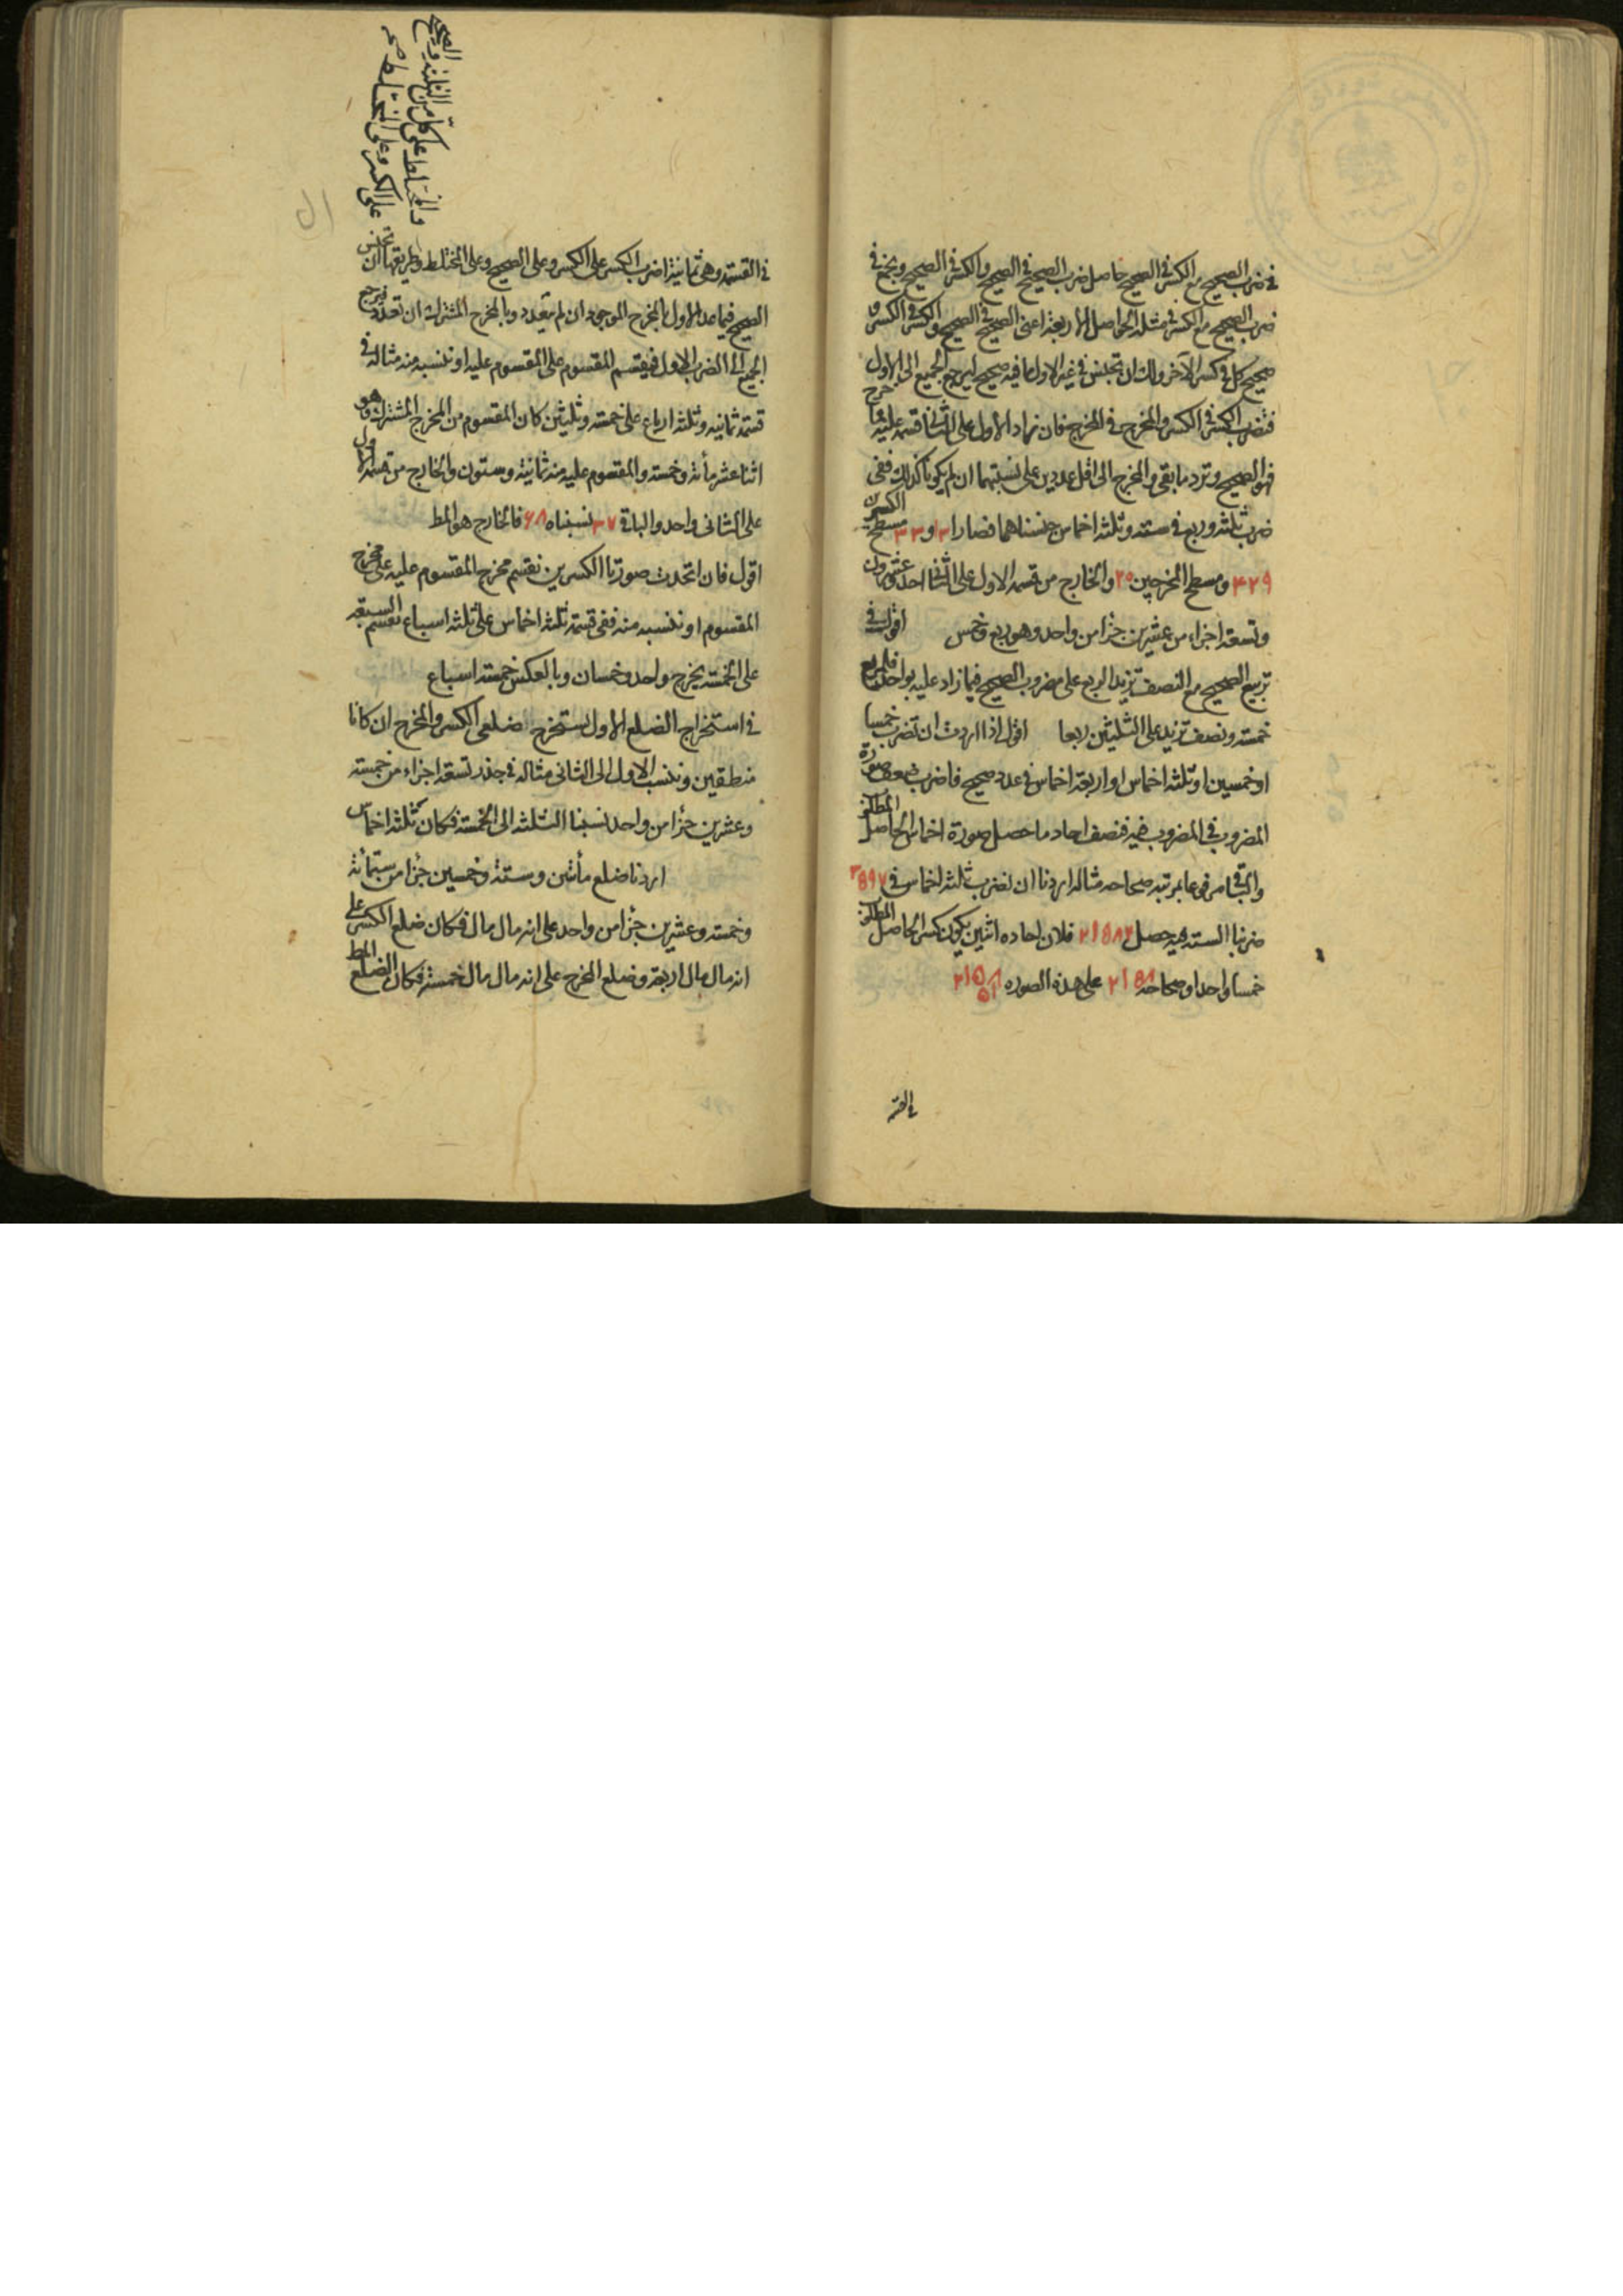 في ضرب الصحيح مع الكسر في الصحيح حاصل ضرب الصحيح في الصحيح والكسر في الصحيح ويجمع في
ضرب الصحيح مع الكسر في مثله الحواصل الاربعة اعنى الصحيح في الصحيح والكسر في الكسر و
صحيح كل في كسر الآخر ولك ان تجنس في غير الاول ما فيه صحيح ليرجع الجميع الى الاول
فتضرب الكسر في الكسر والمخرج في المخرج فان زاد الاول على الثاني قسمته عليه فما خرج
فهو الصحيح وترد ما بقي والمخرج الى اقل عددين على نسبتهما ان لم يكونا كذلك ففي
ضرب ثلثة وربع في ستة وثلثة اخماس جنسناهما فصارا ۱۳ و ۳۳ مسطح الكسرين
۴۲۹ ومسطح المخرجين ۲۰ والخارج من قسمة الاول على الثاني احد وعشرون
وتسعة اجزاء من عشرين جزأ من واحد وهو ربع وخمس اقول في
تربيع الصحيح مع النصف تزيد الربع على مضروب الصحيح فيما زاد عليه بواحد فلمربع
خمسة ونصف تزيد على الثلثين ربعا اقول اذا اردت ان تضرب خمسا
او خمسين او ثلثة اخماس او اربعة اخماس في عدد صحيح فاضرب ضعف صورة
المضروب في المضروب فيه فنصف احاد ما حصل صورة اخماس الحاصل المطلوب
والباقي مرفوعا بمرتبة صحاحه مثاله اردنا ان نضرب ثلثة اخماس في ۳۵۹۷
ضربنا الستة فيه حصل ۲۱۵۸۲ فلان احاده اثنين يكون كسر الحاصل المطلوب
خمسا واحدا وصحاحه ۲۱۵۸ على هذه الصوره
في القسمة
والمختلط على كل من الثلثة والصحيح
على الكسر وعلى المختلط صح
في القسمة وهي ثمانية اضرب الكسر على الكسر وعلى الصحيح وعلى المختلط وطريقها ان تجنس
الصحيح فيما عدا الاول بالمخرج الموجود ان لم يتعدد وبالمخرج المشترك ان تعدد فيرجع
الجميع الى الضرب الاول فيقسم المقسوم على المقسوم عليه او تنسبه منه مثاله في
قسمة ثمانية وثلثة ارباع على خمسة وثلثين كان المقسوم من المخرج المشترك وهو
اثنا عشر مأة وخمسة والمقسوم عليه منه ثمانية وستون والخارج من قسمة الاول
على الثاني واحد والباقي ۳۷ نسبناه ۶۸ فالخارج هو المط
اقول فان اتحدت صورتا الكسرين نقسم مخرج المقسوم عليه على مخرج
المقسوم او ننسبه منه ففي قسمة ثلثة اخماس على ثلثة اسباع نقسم السبعة
على الخمسة يخرج واحد وخمسان وبالعكس خمسة اسباع
في استخراج الضلع الاول نستخرج ضلعي الكسر والمخرج ان كانا
منطقين وننسب الاول الى الثاني مثاله في جذر تسعة اجزاء من خمسة
وعشرين جزأ من واحد نسبنا الثلثة الى الخمسة فكان ثلثة اخماس
اردنا ضلع مأتين وستة وخمسين جزأ من ستمائة
وخمسة وعشرين جزأ من واحد على انه مال مال فكان ضلع الكسر على
انه مال مال اربعة وضلع المخرج على انه مال مال خمسة فكان الضلع المط